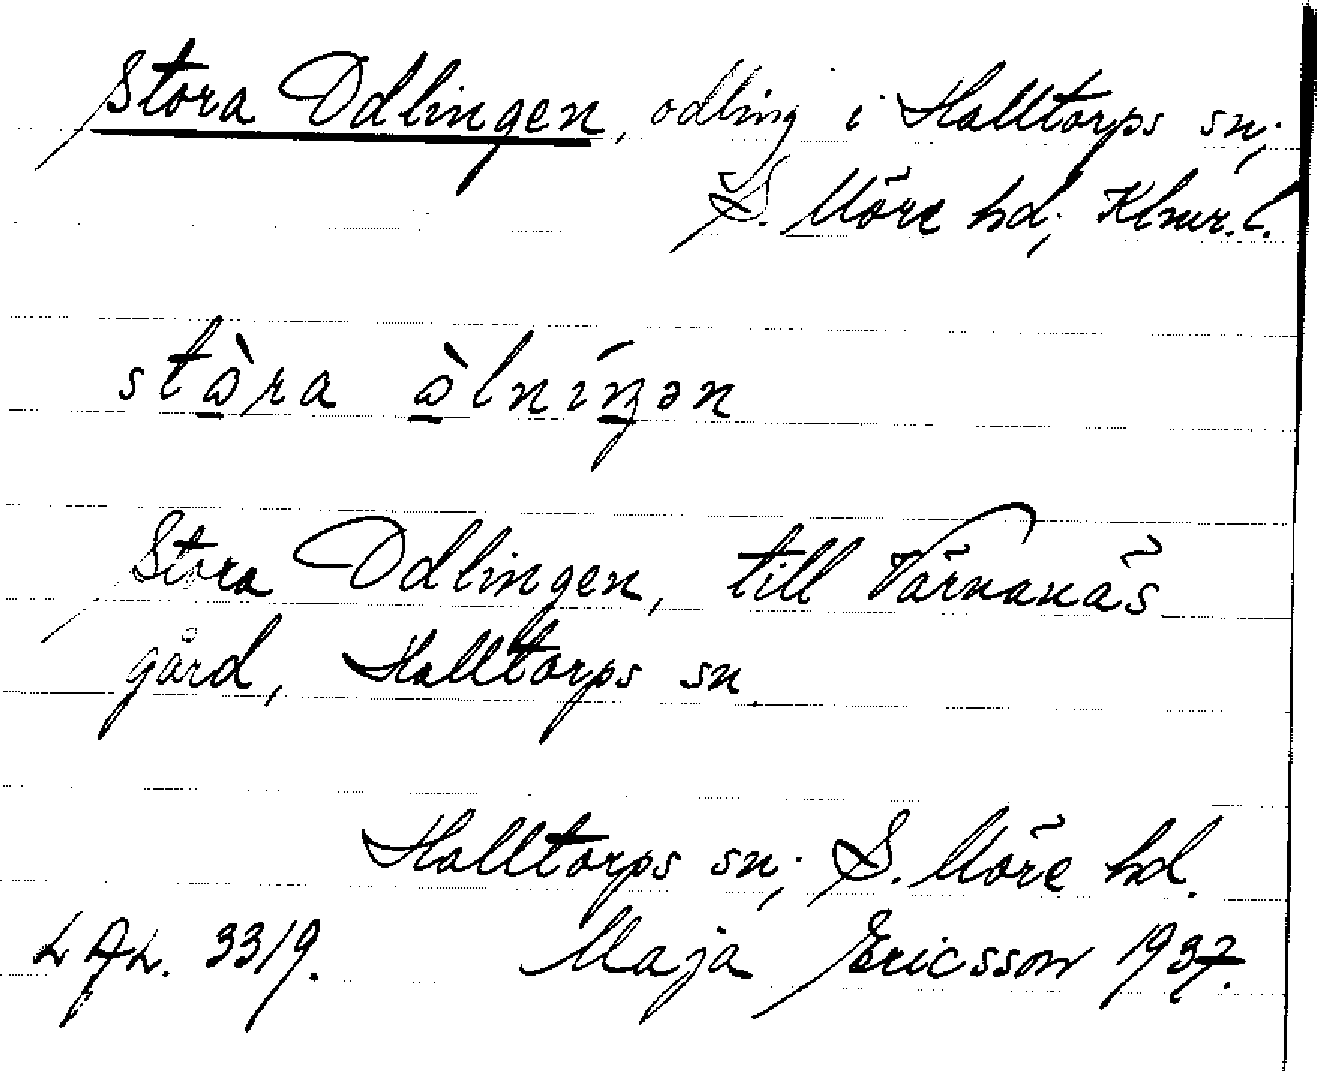 Stora Odlingen, odling i Halltorps sn;
S. Möre hd; Klmr. l.
stò̱ra ò̱lnıŋən
Stora Odlingen, till Värnanäs
gård, Halltorps sn.
Halltorps sn; S. Möre hd.
3319. Maja Ericsson 1937.